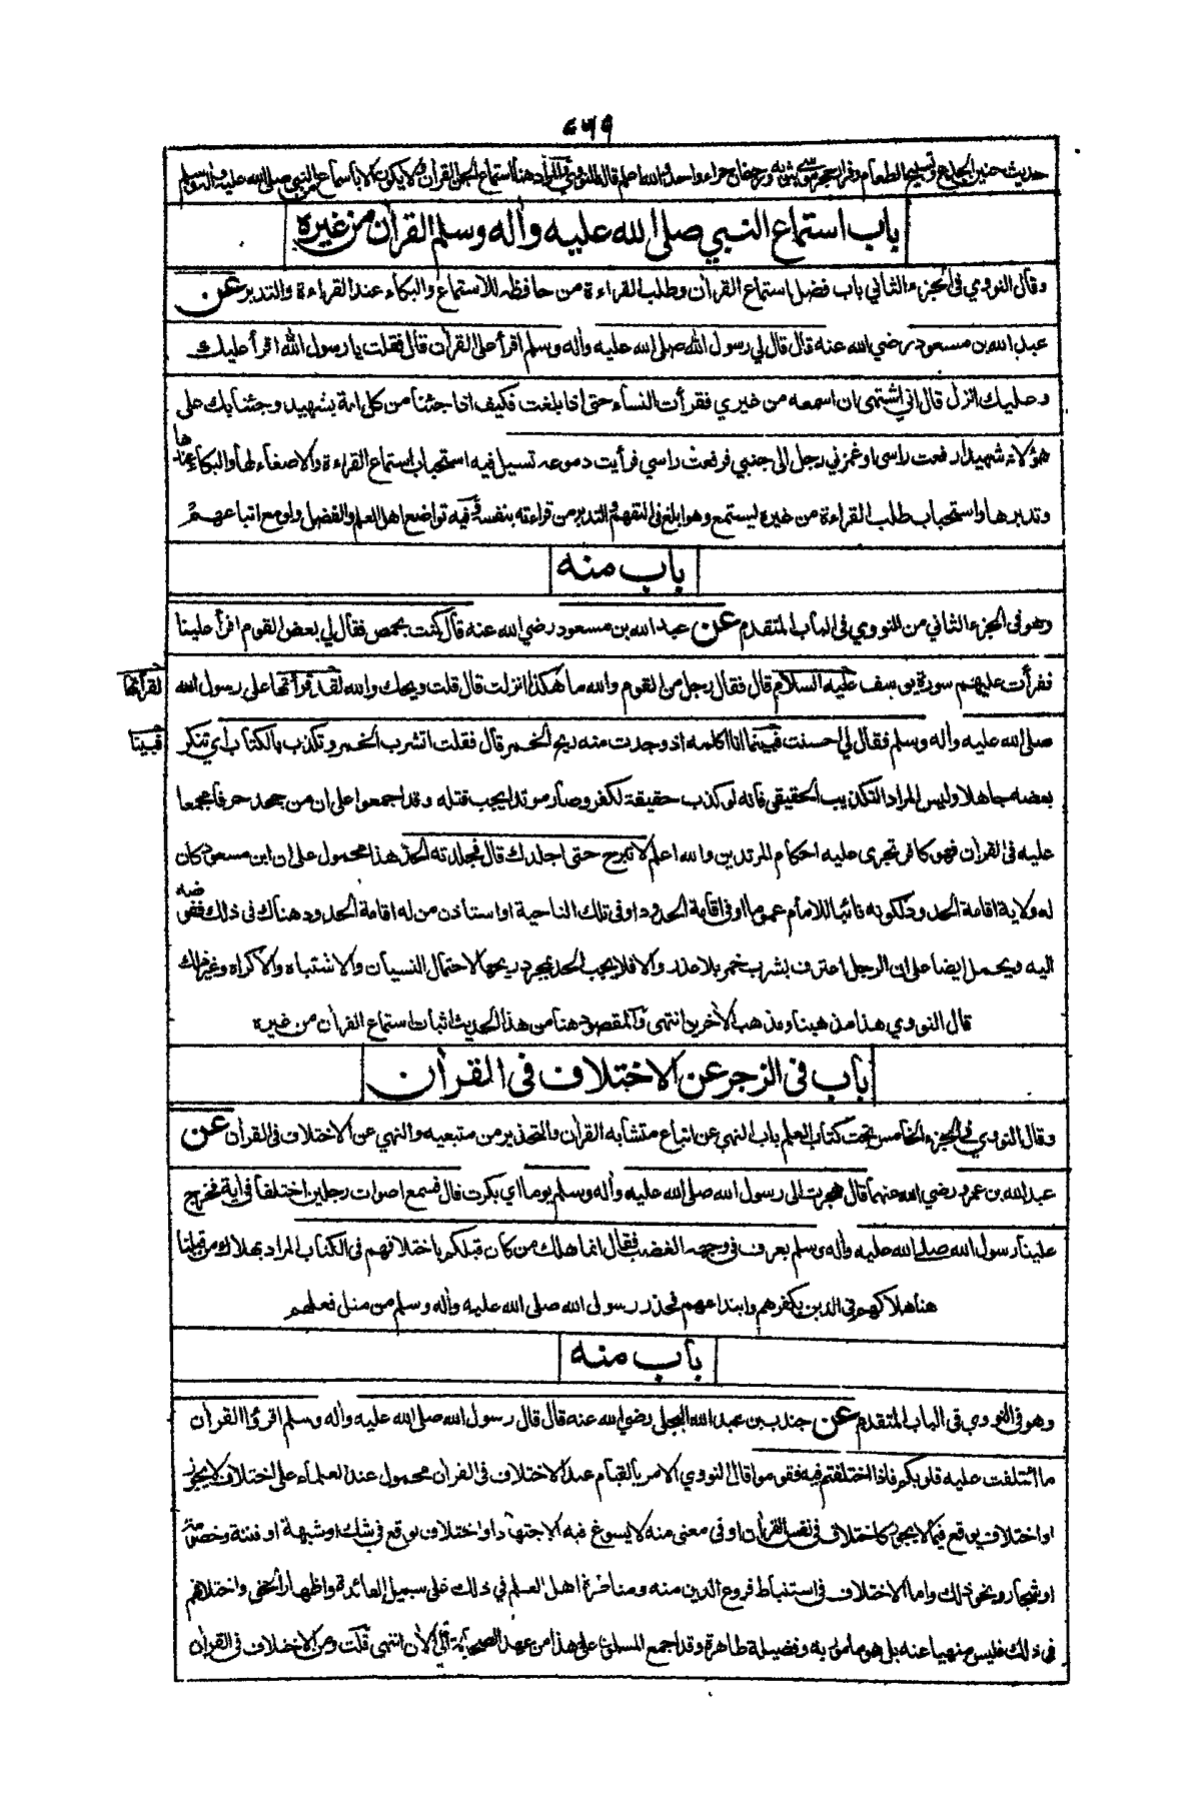 حديث حنين الجذع وتسبيح الطعام وفرار حجر موسى بثوبه ورجفان حراء واحد والله اعلم قاله النووي المراد هنا استماع الجن القرآن ولا يكون الا باسماع النبي صلى الله عليه واله وسلم
باب استماع النبي صلى الله عليه وأله وسلم القرأن من غيره
وقال النووي في الجزء الثاني باب فضل استماع القرأن وطلب القراءة من حافظه للاستماع والبكاء عند القراءة والتدبر عن
عبد الله بن مسعود رضي الله عنه قال قال لي رسول الله صلى الله عليه وأله وسلم اقرأ على القرأن قال فقلت يا رسول الله اقرأ عليك
وعليك انزل قال اني اشتهى ان اسمعه من غيري فقرأت النسأء حتى اذا بلغت فكيف اذا جئنا من كل امة بشهيد وجئنا بك على
هؤلاء شهيدا رفعت راسى او غمزني رجل الى جنبي فرفعت راسي فرأيت دموعه تسيل فيه استحباب استماع القراءة والاصغاء لها والبكاء عندها
وتدبرها واستحباب طلب القراءة من غيره ليستمع وهو ابلغ في التفهم والتدبر من قراءته بنفسه وفيه تواضع اهل العلم والفضل ولو مع اتباعهم
باب منه
وهو في الجزء الثاني من النووي في الباب المتقدم عن عبد الله بن مسعود رضي الله عنه قال كنت بحمص فقال لي بعض القوم اقرأ علينا
فقرأت عليهم سورة يوسف عليه السلام قال فقال رجل من القوم والله ما هكذا انزلت قال قلت ويحك والله لقد قرأتها على رسول الله
لقرأتها
صلى الله عليه وأله وسلم فقال لي احسنت فبينما انا اكلمه اذ وجدت منه ريح الخمر قال فقلت اتشرب الخمر وتكذب بالكتاب اي تنكر
فبينا
بعضه جاهلا وليس المراد التكذيب الحقيقي فانه لو كذب حقيقة لكفر وصار مرتدا يجب قتله وقد اجمعوا على ان من جحد حرفا مجمعا
عليه في القرأن فهو كافر تجرى عليه احكام المرتدين والله اعلم لا تبرح حتى اجلدك قال فجلدته الحد هذا محمول على ان ابن مسعود كان
له ولاية اقامة الحدود لكونه نائبا للامام عموما او في اقامة الحدود او في تلك الناحية او استاذن من له اقامة الحدود هناك في ذلك ففوضه
اليه ويحمل ايضا على ان الرجل اعترف بشرب خمر بلا عذر والا فلا يجب الحد بمجرد ريحها لاحتمال النسيان والاشتباه والاكراه وغير ذلك
قال النووي هذا مذهبنا ومذهب الأخرين انتهى والمقصود هنا من هذا الحديث اثبات استماع القرأن من غيره
باب في الزجر عن الاختلاف في القرأن
وقال النووي في الجزء الخامس تحت كتاب العلم باب النهي عن اتباع متشابه القرأن والتحذير من متبعيه والنهي عن الاختلاف في القرأن عن
عبد الله بن عمرو رضي الله عنهما قال هجرت الى رسول الله صلى الله عليه وأله وسلم يوما اي بكرت قال فسمع اصوات رجلين اختلفا في أية فخرج
علينا رسول الله صلى الله عليه وأله وسلم يعرف في وجهه الغضب فقال انما هلك من كان قبلكم باختلافهم في الكتاب المراد بهلاك من قبلنا
هنا هلاكهم في الدين بكفرهم وابتداعهم فحذر رسول الله صلى الله عليه وأله وسلم من مثل فعلهم
باب منه
وهو في النووي في الباب المتقدم عن جندب بن عبد الله البجلي رضي الله عنه قال قال رسول الله صلى الله عليه وأله وسلم اقرؤا القرأن
ما ائتلفت عليه قلوبكم فاذا اختلفتم فيه فقوموا قال النووي الامر بالقيام عند الاختلاف في القرأن محمول عند العلمأء على اختلاف لا يجوز
او اختلاف يوقع فيما لا يجوز كاختلاف في نفس القرأن او في معنى منه لا يسوغ فيه الاجتهاد او اختلاف يوقع في شك او شبهة او فتنة وخصومة
او شجار ونحو ذلك واما الاختلاف في استنباط فروع الدين منه ومناظرة اهل العلم في ذلك على سبيل الفائدة واظهار الحق واختلافهم
في ذلك فليس منهيا عنه بل هو مأمور به وفضيلة ظاهرة وقد اجمع المسلمون على هذا من عهد الصحابة الى الأن انتهى قلت ومن الاختلاف في القرأن